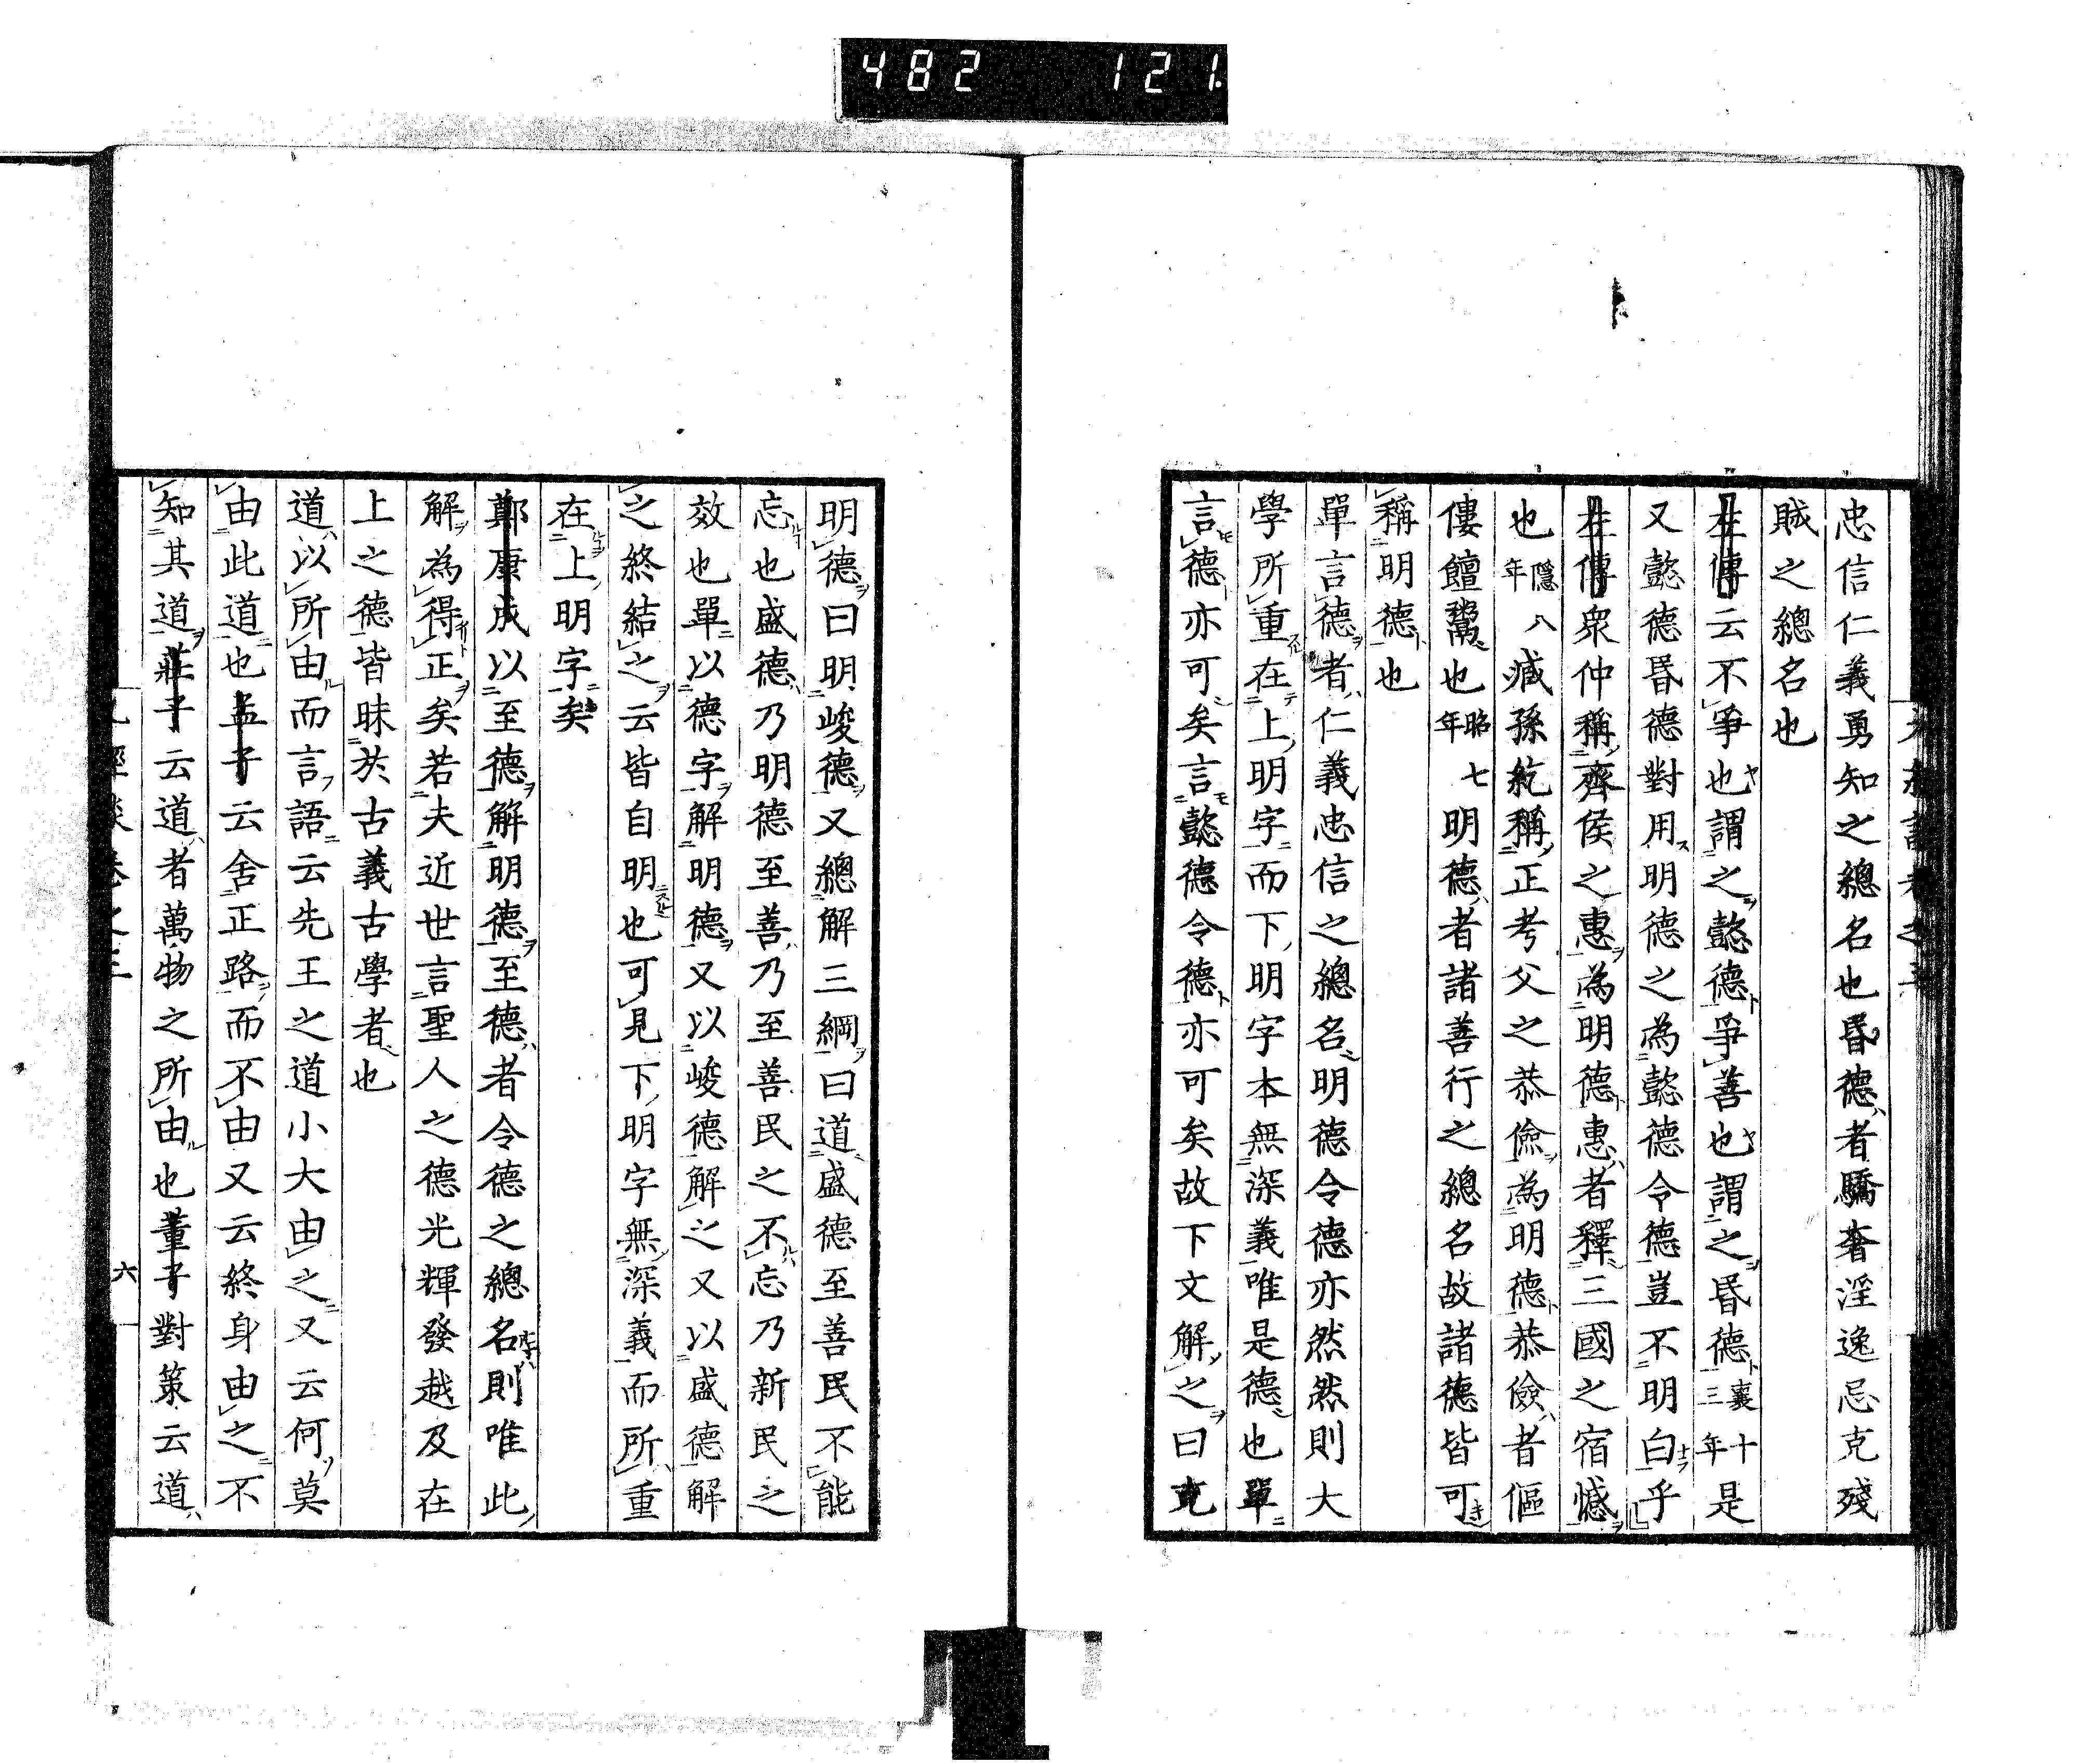 482 121.
忠信仁義勇知之總名也昏德者驕奢淫逸忌克殘
賊之總名也
左傳云不爭也謂之懿德爭善也謂之昏德襄十三年是
又懿德昏德對用明德之為懿德令德豈不明白乎
左傳眾仲稱齊侯之惠為明德惠者釋三國之宿憾
也隱八年臧孫紇稱正考父之恭儉為明德恭儉者傴
僂饘鬻也昭七年明德者諸善行之總名故諸德皆可
稱明德也
單言德者仁義忠信之總名明德令德亦然然則大
學所重在上明字而下明字本無深義唯是德也單
言德亦可矣言懿德令德亦可矣故下文解之曰克
明德曰明峻德又總解三綱曰道盛德至善民不能
忘也盛德乃明德至善乃至善民之不忘乃新民之
效也單以德字解明德又以峻德解之又以盛德解
之終結之云皆自明也可見下明字無深義而所重
在上明字矣
鄭康成以至德解明德至德者令德之總名則唯此
解為得正矣若夫近世言聖人之德光輝發越及在
上之德皆昧於古義古學者也
道以所由而言語云先王之道小大由之又云何莫
由此道也孟子云舍正路而不由又云終身由之不
知其道莊子云道者萬物之所由也董子對策云道
六